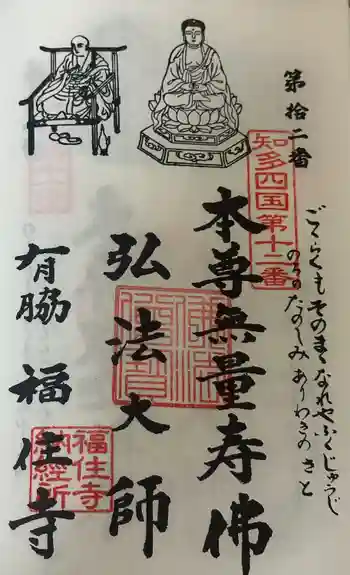 第拾二番
ごくらくも そのまゝなれや ふくじゅうじ
のちの たのしみ ありわきの さと
知多四国第十二番
本尊無量寿佛
弘法大師
有脇 福住寺
福住寺
納経所